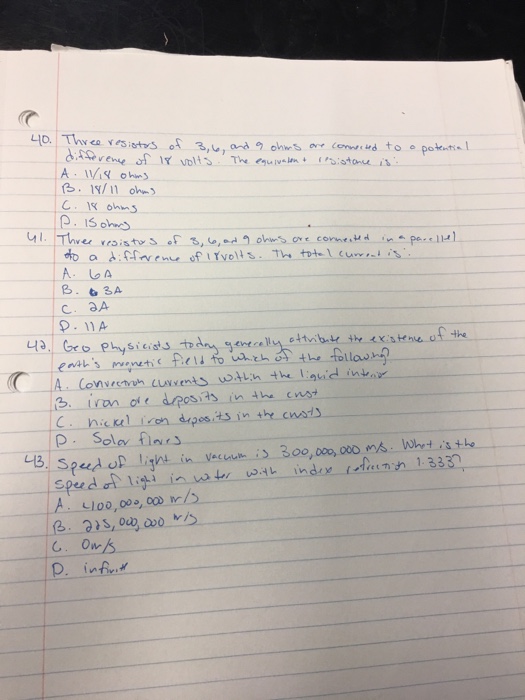 40. Three resistors of 3, 6, and 9 ohms are connected to a potential
difference of 18 volts. The equivalent resistance is:
A. 11/18 ohms
B. 18/11 ohms
C. 18 ohms
D. 15 ohms
41. Three resistors of 3, 6, and 9 ohms are connected in a parallel
to a difference of 18 volts. The total current is:
A. 6A
B. 3A
C. 2A
D. 11A
42. Geo physicists today generally attribute the existence of the
earth's magnetic field to which of the following?
A. Convection currents within the liquid interior
B. iron ore deposits in the crust
C. nickel iron deposits in the crusts
D. Solar flares
43. Speed of light in vacuum is 300,000,000 m/s. What is the
speed of light in water with index refraction 1.333?
A. 400,000,000 m/s
B. 225,000,000 m/s
C. 0m/s
D. infinit